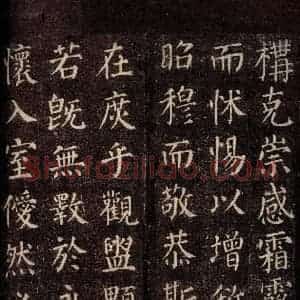 構克崇感霜露
而怵惕以增
昭穆而敬恭斯
在庶乎觀盥顒
若既無斁於
懷入室僾然